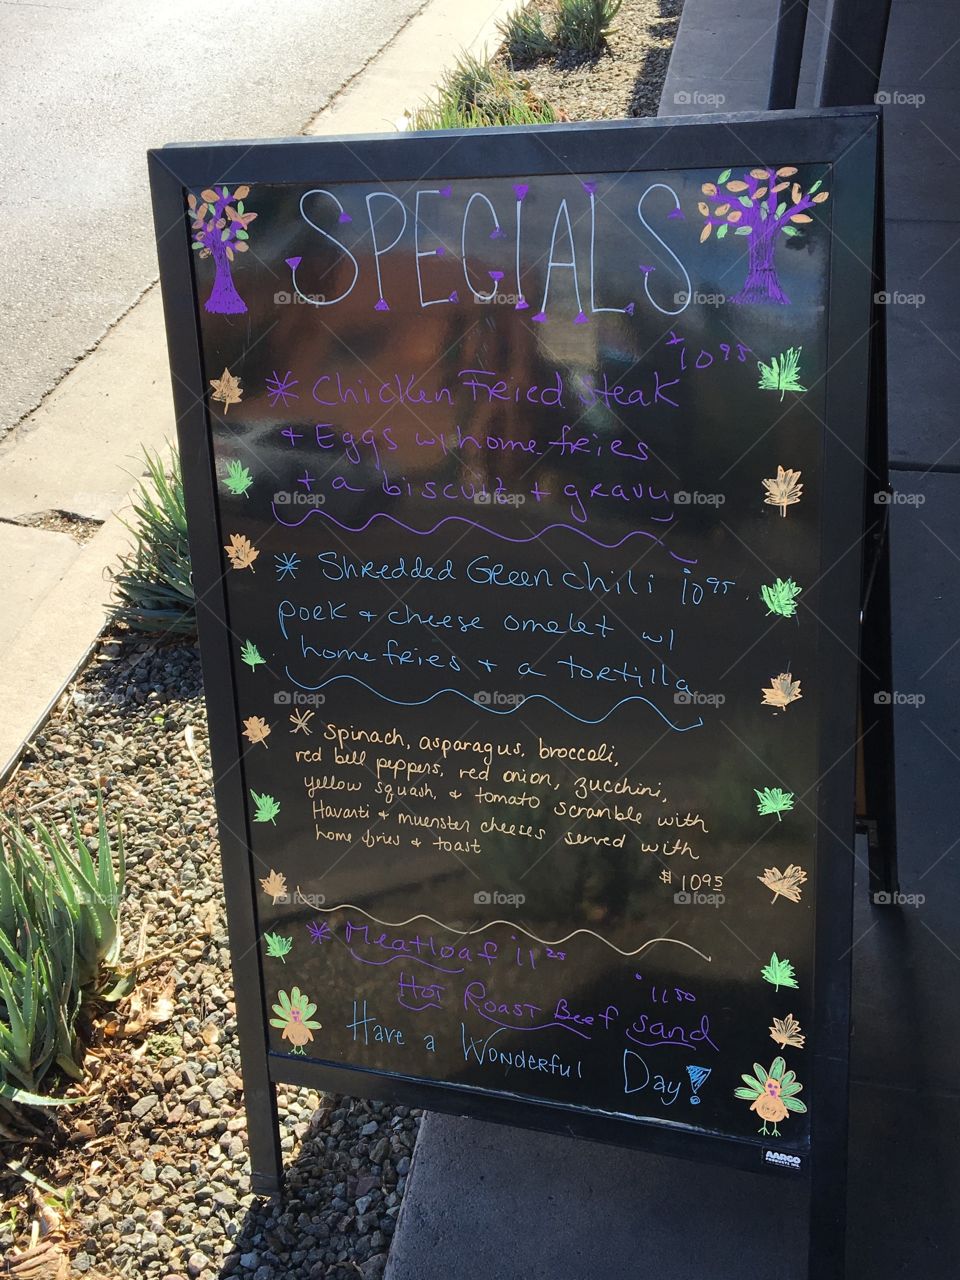 SPECIALS
$10 95
* Chicken Fried Steak
+ Eggs w/ home fries
+ a biscuit + gravy
* Shredded Green chili 10 95
pork + cheese omelet w/
home fries + a tortilla
* Spinach, asparagus, broccoli,
red bell peppers, red onion, zucchini,
yellow squash, & tomato scramble with
Havarti & muenster cheeses served with
home fries & toast
$ 10 95
* Meatloaf 11 25
11 50
Hot Roast Beef Sand
Have a Wonderful Day!
AARCO
PRODUCTS INC.
foap